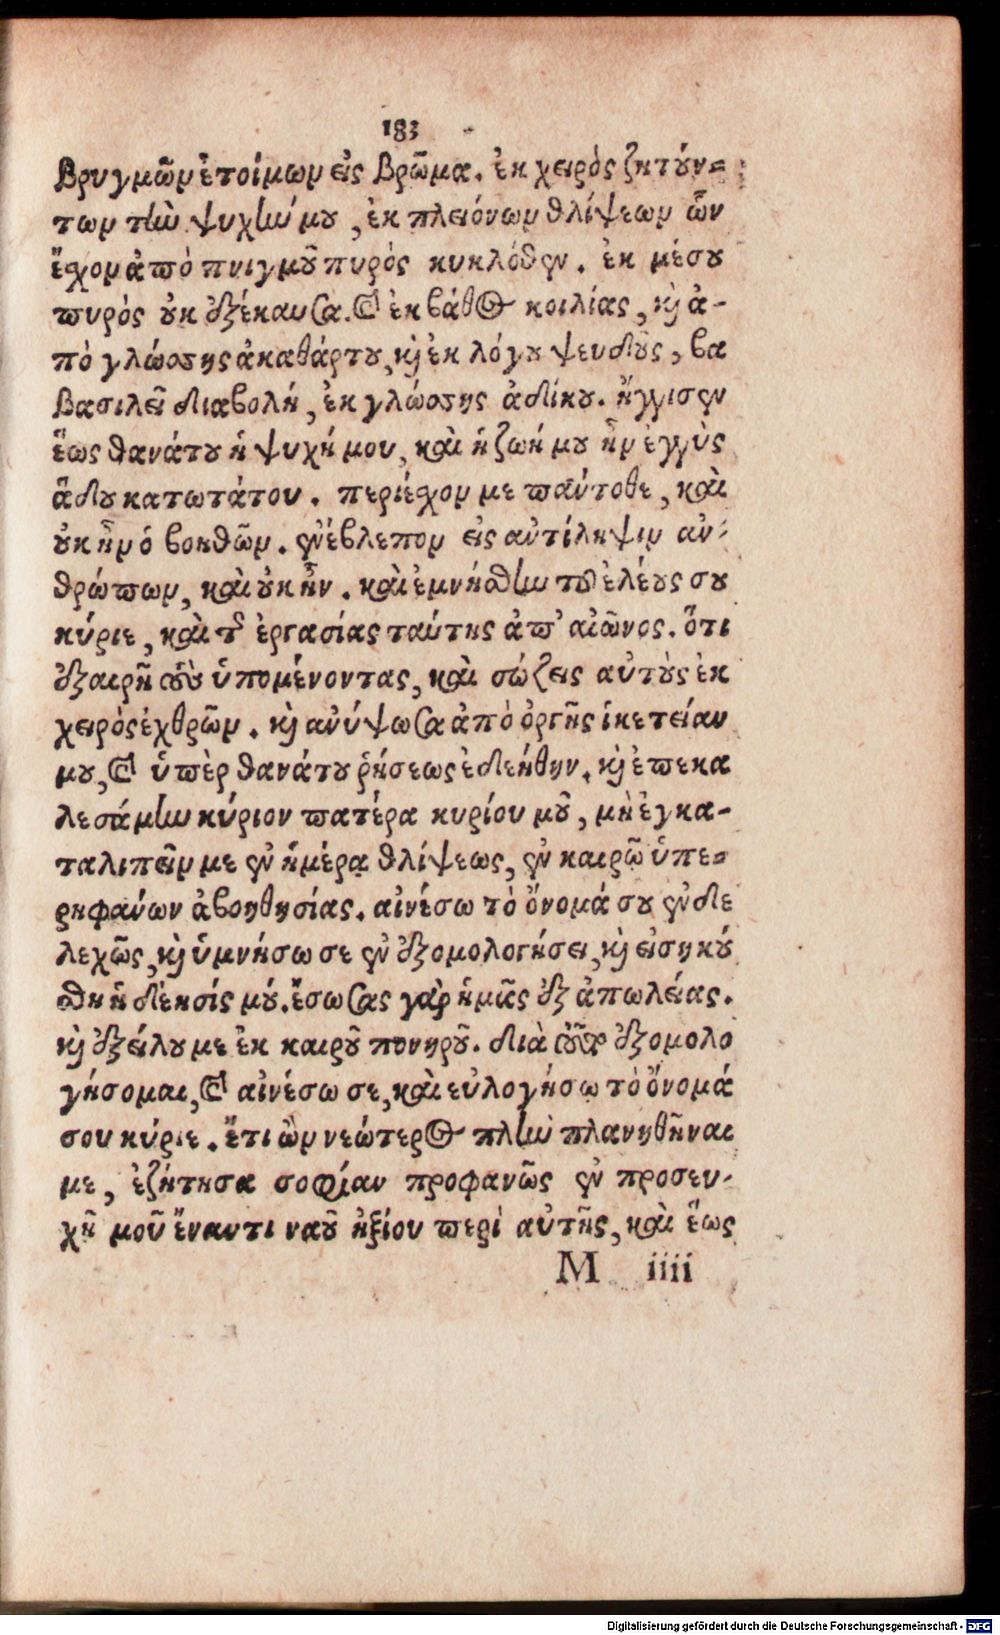 183
βρυγμῶν ἑτοίμων εἰς βρῶμα. ἐκ χειρὸς ζητούν-
των τὴν ψυχήν μου, ἐκ πλειόνων θλίψεων ὧν
ἔχον ἀπὸ πνιγμοῦ πυρὸς κυκλόθεν. ἐκ μέσου
πυρὸς οὐκ ἐξέκαυσα. καὶ ἐκ βάθος κοιλίας, καὶ ἀ-
πὸ γλώσσης ἀκαθάρτου, καὶ ἐκ λόγου ψευδοῦς, βα
βασιλεῖ διαβολή, ἐκ γλώσσης ἀδίκου. ἤγγισεν
ἕως θανάτου ἡ ψυχή μου, καὶ ἡ ζωή μου ἦν ἐγγὺς
ᾅδου κατωτάτου. περιέχον με πάντοθε, καὶ
οὐκ ἦν ὁ βοηθῶν. ἐνέβλεπον εἰς ἀντίληψιν ἀν-
θρώπων, καὶ οὐκ ἦν. καὶ ἐμνήσθην τοῦ ἐλέους σου
κύριε, καὶ τῆς ἐργασίας ταύτης ἀπ' αἰῶνος. ὅτι
ἐξαιρῇ τοὺς ὑπομένοντας, καὶ σώζεις αὐτοὺς ἐκ
χειρὸς ἐχθρῶν. καὶ ἀνύψωσα ἀπὸ ὀργῆς ἱκετείαν
μου, καὶ ὑπὲρ θανάτου ῥήσεως ἐδεήθην. καὶ ἐπεκα
λεσάμην κύριον πατέρα κυρίου μοῦ, μὴ ἐγκα-
ταλιπεῖν με ἐν ἡμέρᾳ θλίψεως, ἐν καιρῷ ὑπε-
ρηφάνων ἀβοηθησίας. αἰνέσω τὸ ὄνομά σου ἐνδε
λεχῶς, καὶ ὑμνήσω σε ἐν ἐξομολογήσει, καὶ εἰσηκού
σθη ἡ δέησίς μου. ἔσωσας γὰρ ἡμᾶς ἐξ ἀπωλείας.
καὶ ἐξείλου με ἐκ καιροῦ πονηροῦ. διὰ τοῦτο ἐξομολο
γήσομαι, καὶ αἰνέσω σε, καὶ εὐλογήσω τὸ ὄνομά
σου κύριε. ἔτι ὢν νεώτερος πλὴν πλανηθῆναι
με, ἐζήτησα σοφίαν προφανῶς ἐν προσευ-
χῇ μοῦ ἔναντι ναοῦ ἠξίου περὶ αὐτῆς, καὶ ἕως
M iiii
Digitalisierung gefördert durch die Deutsche Forschungsgemeinschaft - DFG